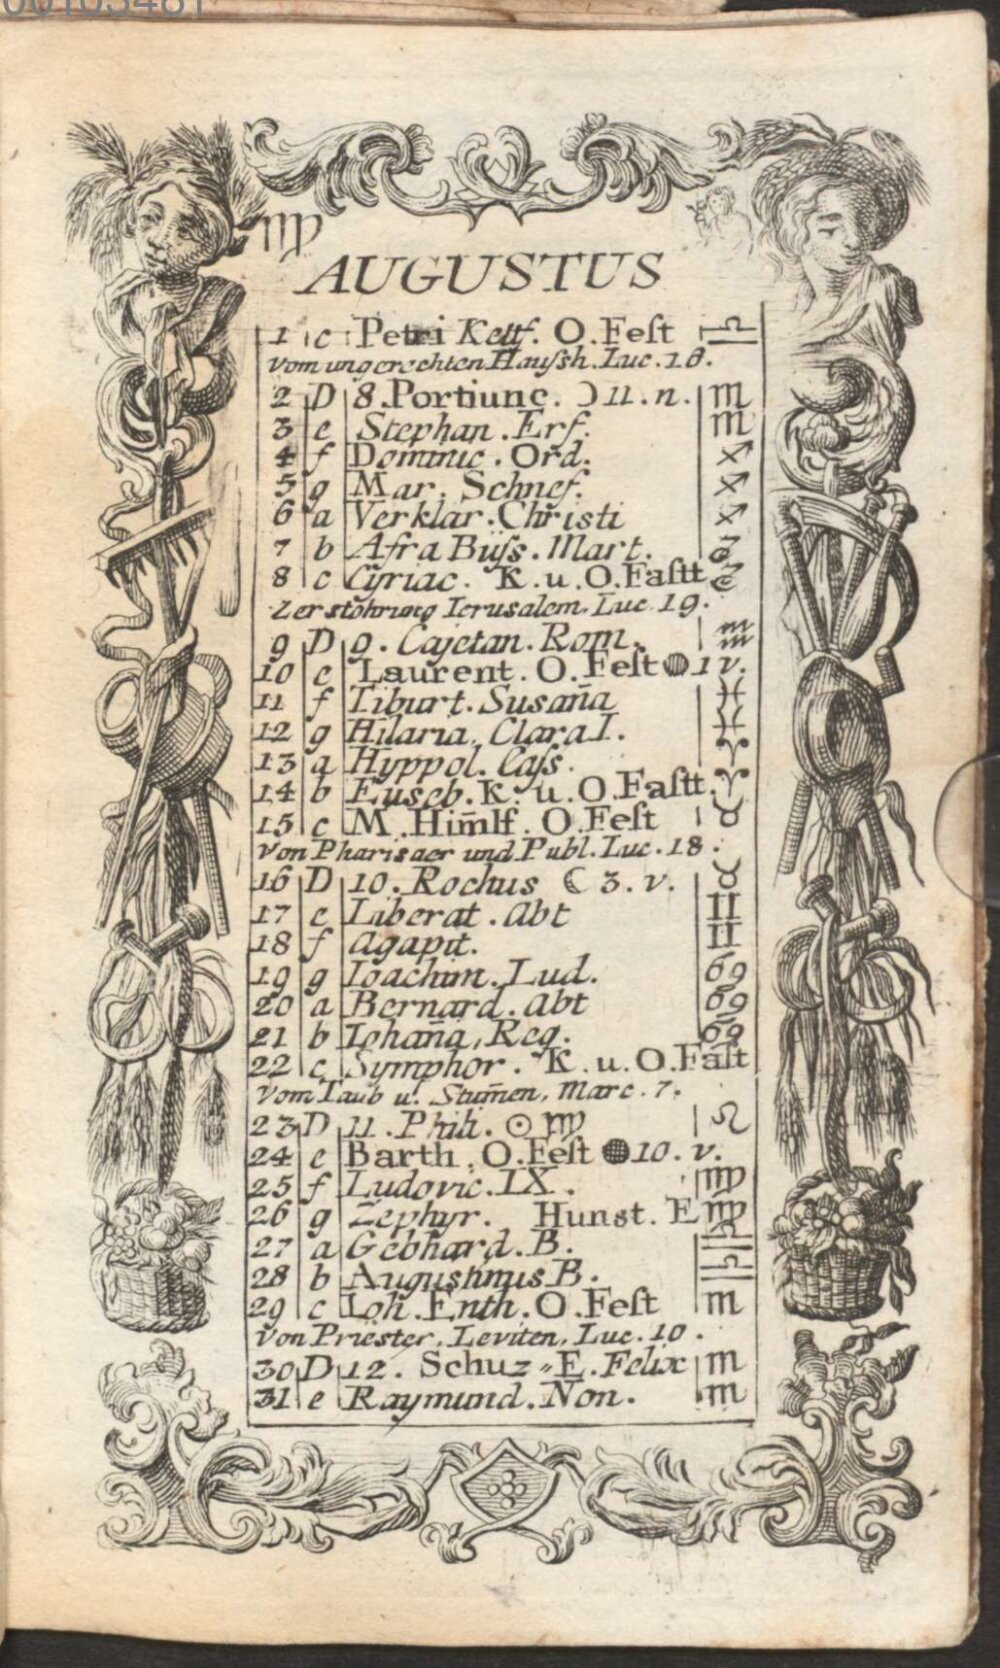 00103481
♍
AUGUSTUS
1 c Petri Kettf. O. Feſt ♎
Vom ungerechten Hauſsh. Luc. 16.
2 D 8. Portiunc. ☽ 11. n. ♏
3 e Stephan. Erf. ♏
4 f Dominic. Ord. ♐
5 g Mar. Schnef. ♐
6 a Verklär. Christi ♐
7 b Afra Büſs. Mart. ♑
8 c Cÿriac. K. u. O. Faſtt ♑
Zerstöhrung Ierusalem. Luc. 19.
9 D 9. Cajetan. Rom. ♒
10 e Laurent. O. Feſt ● 1 v.
11 f Tiburt. Susan̄a ♓
12 g Hilaria, Clara I. ♓
13 a Hyppol. Caſs. ♈
14 b Euseb. K. u. O. Faſtt. ♈
15 c M. Him̄lf. O. Feſt ♉
Von Pharisaer und Publ. Luc. 18.
16 D 10. Rochus ☾ 3. v. ♉
17 e Liberat. Abt ♊
18 f Agapit. ♊
19 g Ioachim. Lud. ♋
20 a Bernard. Abt ♋
21 b Iohan̄a, Reg. ♋
22 c Symphor. K. u. O. Faſt
Vom Taub u. Stum̄en, Marc. 7.
23 D 11. Phili. ☉ ♍ ♌
24 e Barth. O. Feſt ● 10. v.
25 f Ludovic. IX. ♍
26 g Zephyr. Hunst. E ♍
27 a Gebhard. B. ♎
28 b Augustinus B. ♎
29 c Ioh. Enth. O. Feſt ♏
Von Priester, Leviten, Luc. 10.
30 D 12. Schuz-E. Felix ♏
31 e Raymund. Non. ♏